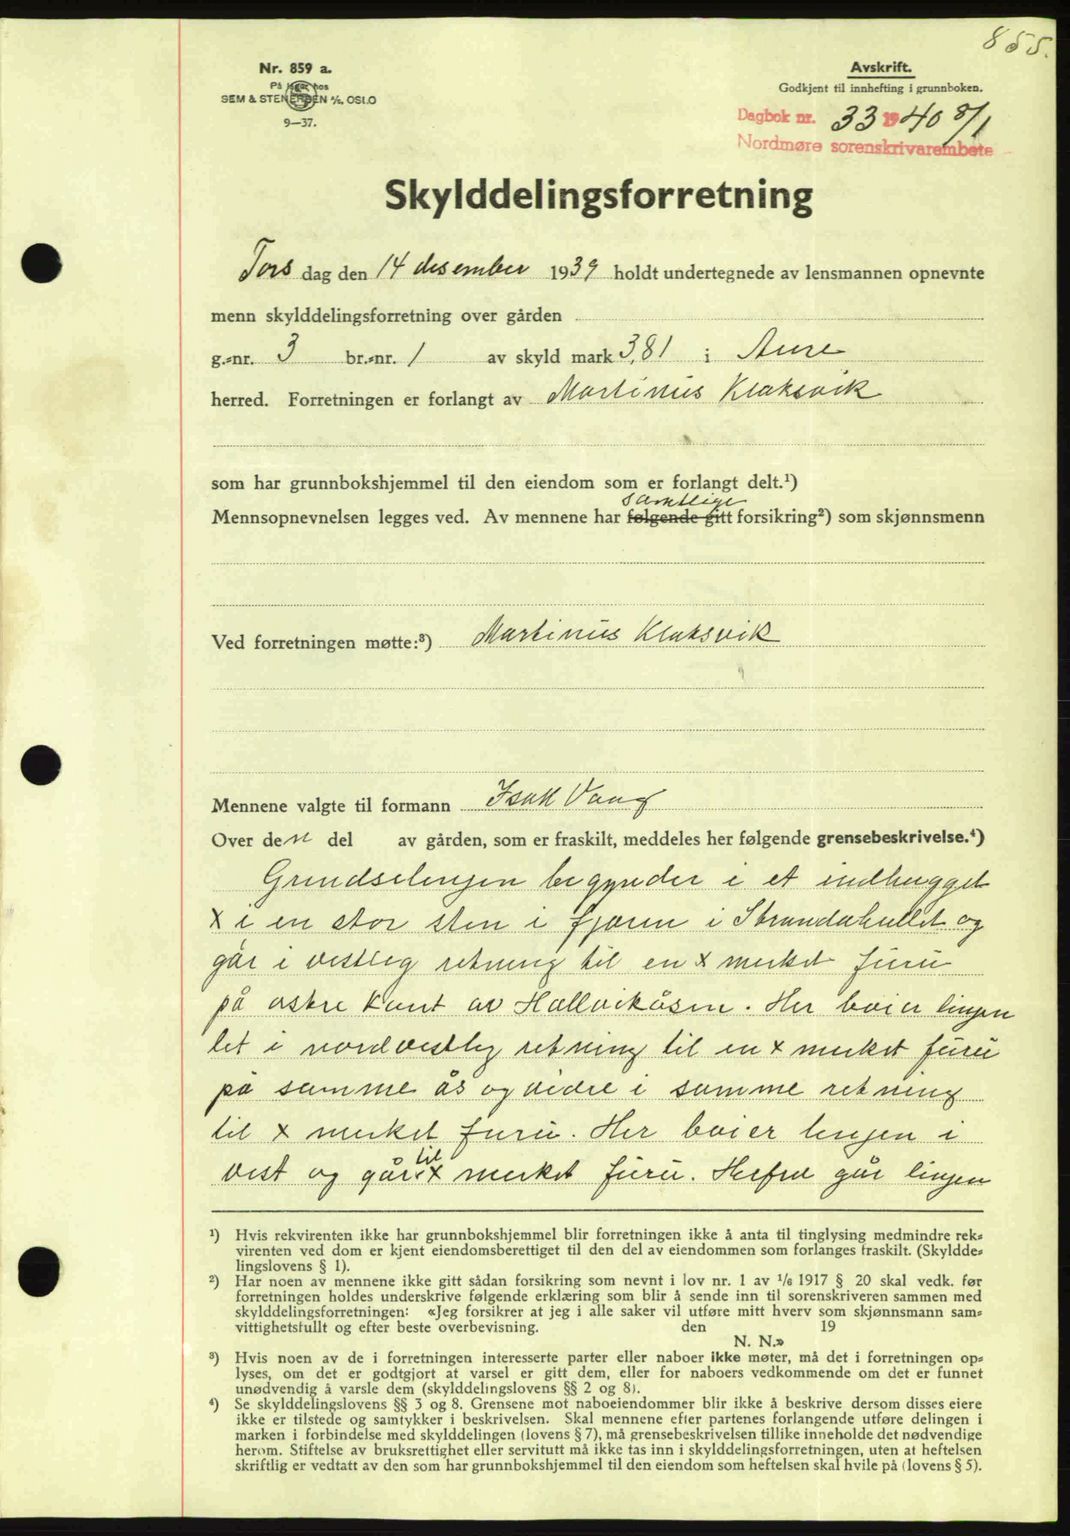 855.
Nr. 859 a.
På lager hos
SEM & STENERSEN A/S, OSLO
9—37.
Avskrift.
Godkjent til innhefting i grunnboken.
Dagbok nr. 33 1940 8/1
Nordmøre sorenskrivarembete
Skylddelingsforretning
Tors dag den 14 desember 1939 holdt undertegnede av lensmannen opnevnte
menn skylddelingsforretning over gården
g.=nr. 3 br.=nr. 1 av skyld mark 3,81 i Aure
herred. Forretningen er forlangt av Martinus Klaksvik
som har grunnbokshjemmel til den eiendom som er forlangt delt.¹)
samtlige
Mennsopnevnelsen legges ved. Av mennene har følgende gitt forsikring²) som skjønnsmenn
Ved forretningen møtte:³) Martinus Klaksvik
Mennene valgte til formann Isak Vaag
Over den del av gården, som er fraskilt, meddeles her følgende grensebeskrivelse.⁴)
Grendselingen begynder i et indhugget
x i en stor sten i fjæren i Strandahullet og
går i vestlig retning til en x merket furu
på østre kant av Hallvikåsen. Her boier lingen
let i nordvestlig retning til en x merket furu
på samme ås og vidre i samme retning
til x merket furu. Her boier lingen i
til
vest og går x merket furu. Herfra går lingen
¹) Hvis rekvirenten ikke har grunnbokshjemmel blir forretningen ikke å anta til tinglysing medmindre rek=
virenten ved dom er kjent eiendomsberettiget til den del av eiendommen som forlanges fraskilt. (Skyldde=
lingslovens § 1).
²) Har noen av mennene ikke gitt sådan forsikring som nevnt i lov nr. 1 av 1/6 1917 § 20 skal vedk. før
forretningen holdes underskrive følgende erklæring som blir å sende inn til sorenskriveren sammen med
skylddelingsforretningen: «Jeg forsikrer at jeg i alle saker vil utføre mitt hverv som skjønnsmann sam=
vittighetsfullt og efter beste overbevisning. den 19
N. N.»
³) Hvis noen av de i forretningen interesserte parter eller naboer ikke møter, må det i forretningen op=
lyses, om det er godtgjort at varsel er gitt dem, eller for naboers vedkommende om det er funnet
unødvendig å varsle dem (skylddelingslovens §§ 2 og 8).
⁴) Se skylddelingslovens §§ 3 og 8. Grensene mot naboeiendommer blir ikke å beskrive dersom disses eiere
ikke er tilstede og samtykker i beskrivelsen. Skal mennene efter partenes forlangende utføre delingen i
marken i forbindelse med skylddelingen (lovens § 7), må grensebeskrivelsen tillike inneholde det nødvendige
herom. Stiftelse av bruksrettighet eller servitutt må ikke tas inn i skylddelingsforretningen, uten at heftelsen
skriftlig er vedtatt av den som har grunnbokshjemmel til den eiendom som heftelsen skal hvile på (lovens § 5).